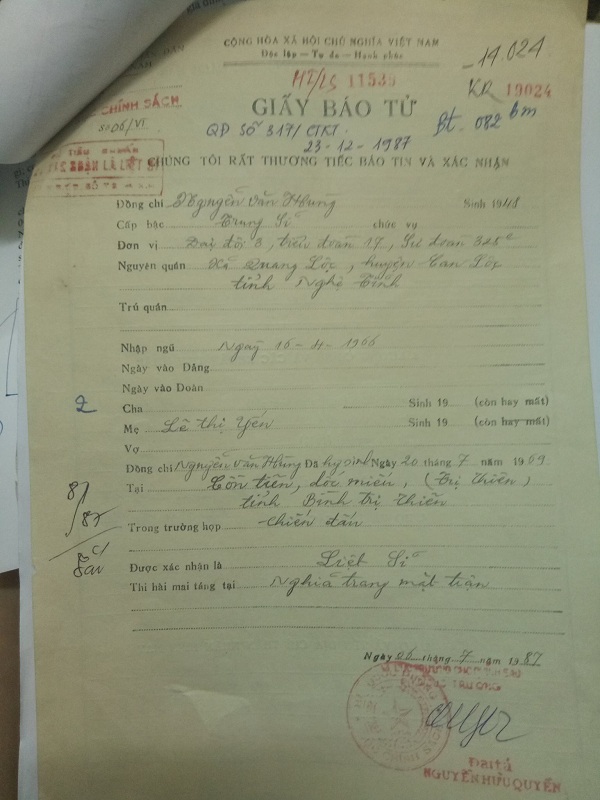 CỘNG HÒA XÃ HỘI CHỦ NGHĨA VIỆT NAM
Độc lập - Tự do - Hạnh phúc
14.024
11539
KR 19024
CHÍNH SÁCH
Số 06/VT
GIẤY BÁO TỬ
Bt. 082 bm
QĐ Số 317/CTKT.
23-12-1987
CHÚNG TÔI RẤT THƯƠNG TIẾC BÁO TIN VÀ XÁC NHẬN
Đồng chí Nguyễn Văn Hùng Sinh 1948
Cấp bậc Trung Sĩ chức vụ
Đơn vị Đại đội 3, tiểu đoàn 17, Sư đoàn
Nguyên quán Xã Quang Lộc, huyện Can Lộc
tỉnh Nghệ Tĩnh
Trú quán
Nhập ngũ Ngày 16-4-1966
Ngày vào Đảng
Ngày vào Đoàn
2
Cha Sinh 19 (còn hay mất)
Mẹ Lê Thị Yến Sinh 19 (còn hay mất)
Vợ
Đồng chí Nguyễn Văn Hùng Đã hy sinh Ngày 20 tháng 7 năm 1969
Tại Cồn tiên, dốc miếu, (Trị Thiên)
tỉnh Bình Trị Thiên
81/87
Trong trường hợp chiến đấu
Được xác nhận là Liệt Sĩ
Thi hài mai táng tại Nghĩa trang mặt trận
Ngày 06 tháng 7 năm 1987
Đại tá
NGUYỄN HỮU QUYỀN